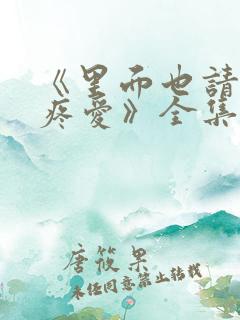 《里而也請
疼愛》全集
唐筱果
未经同意禁止转载